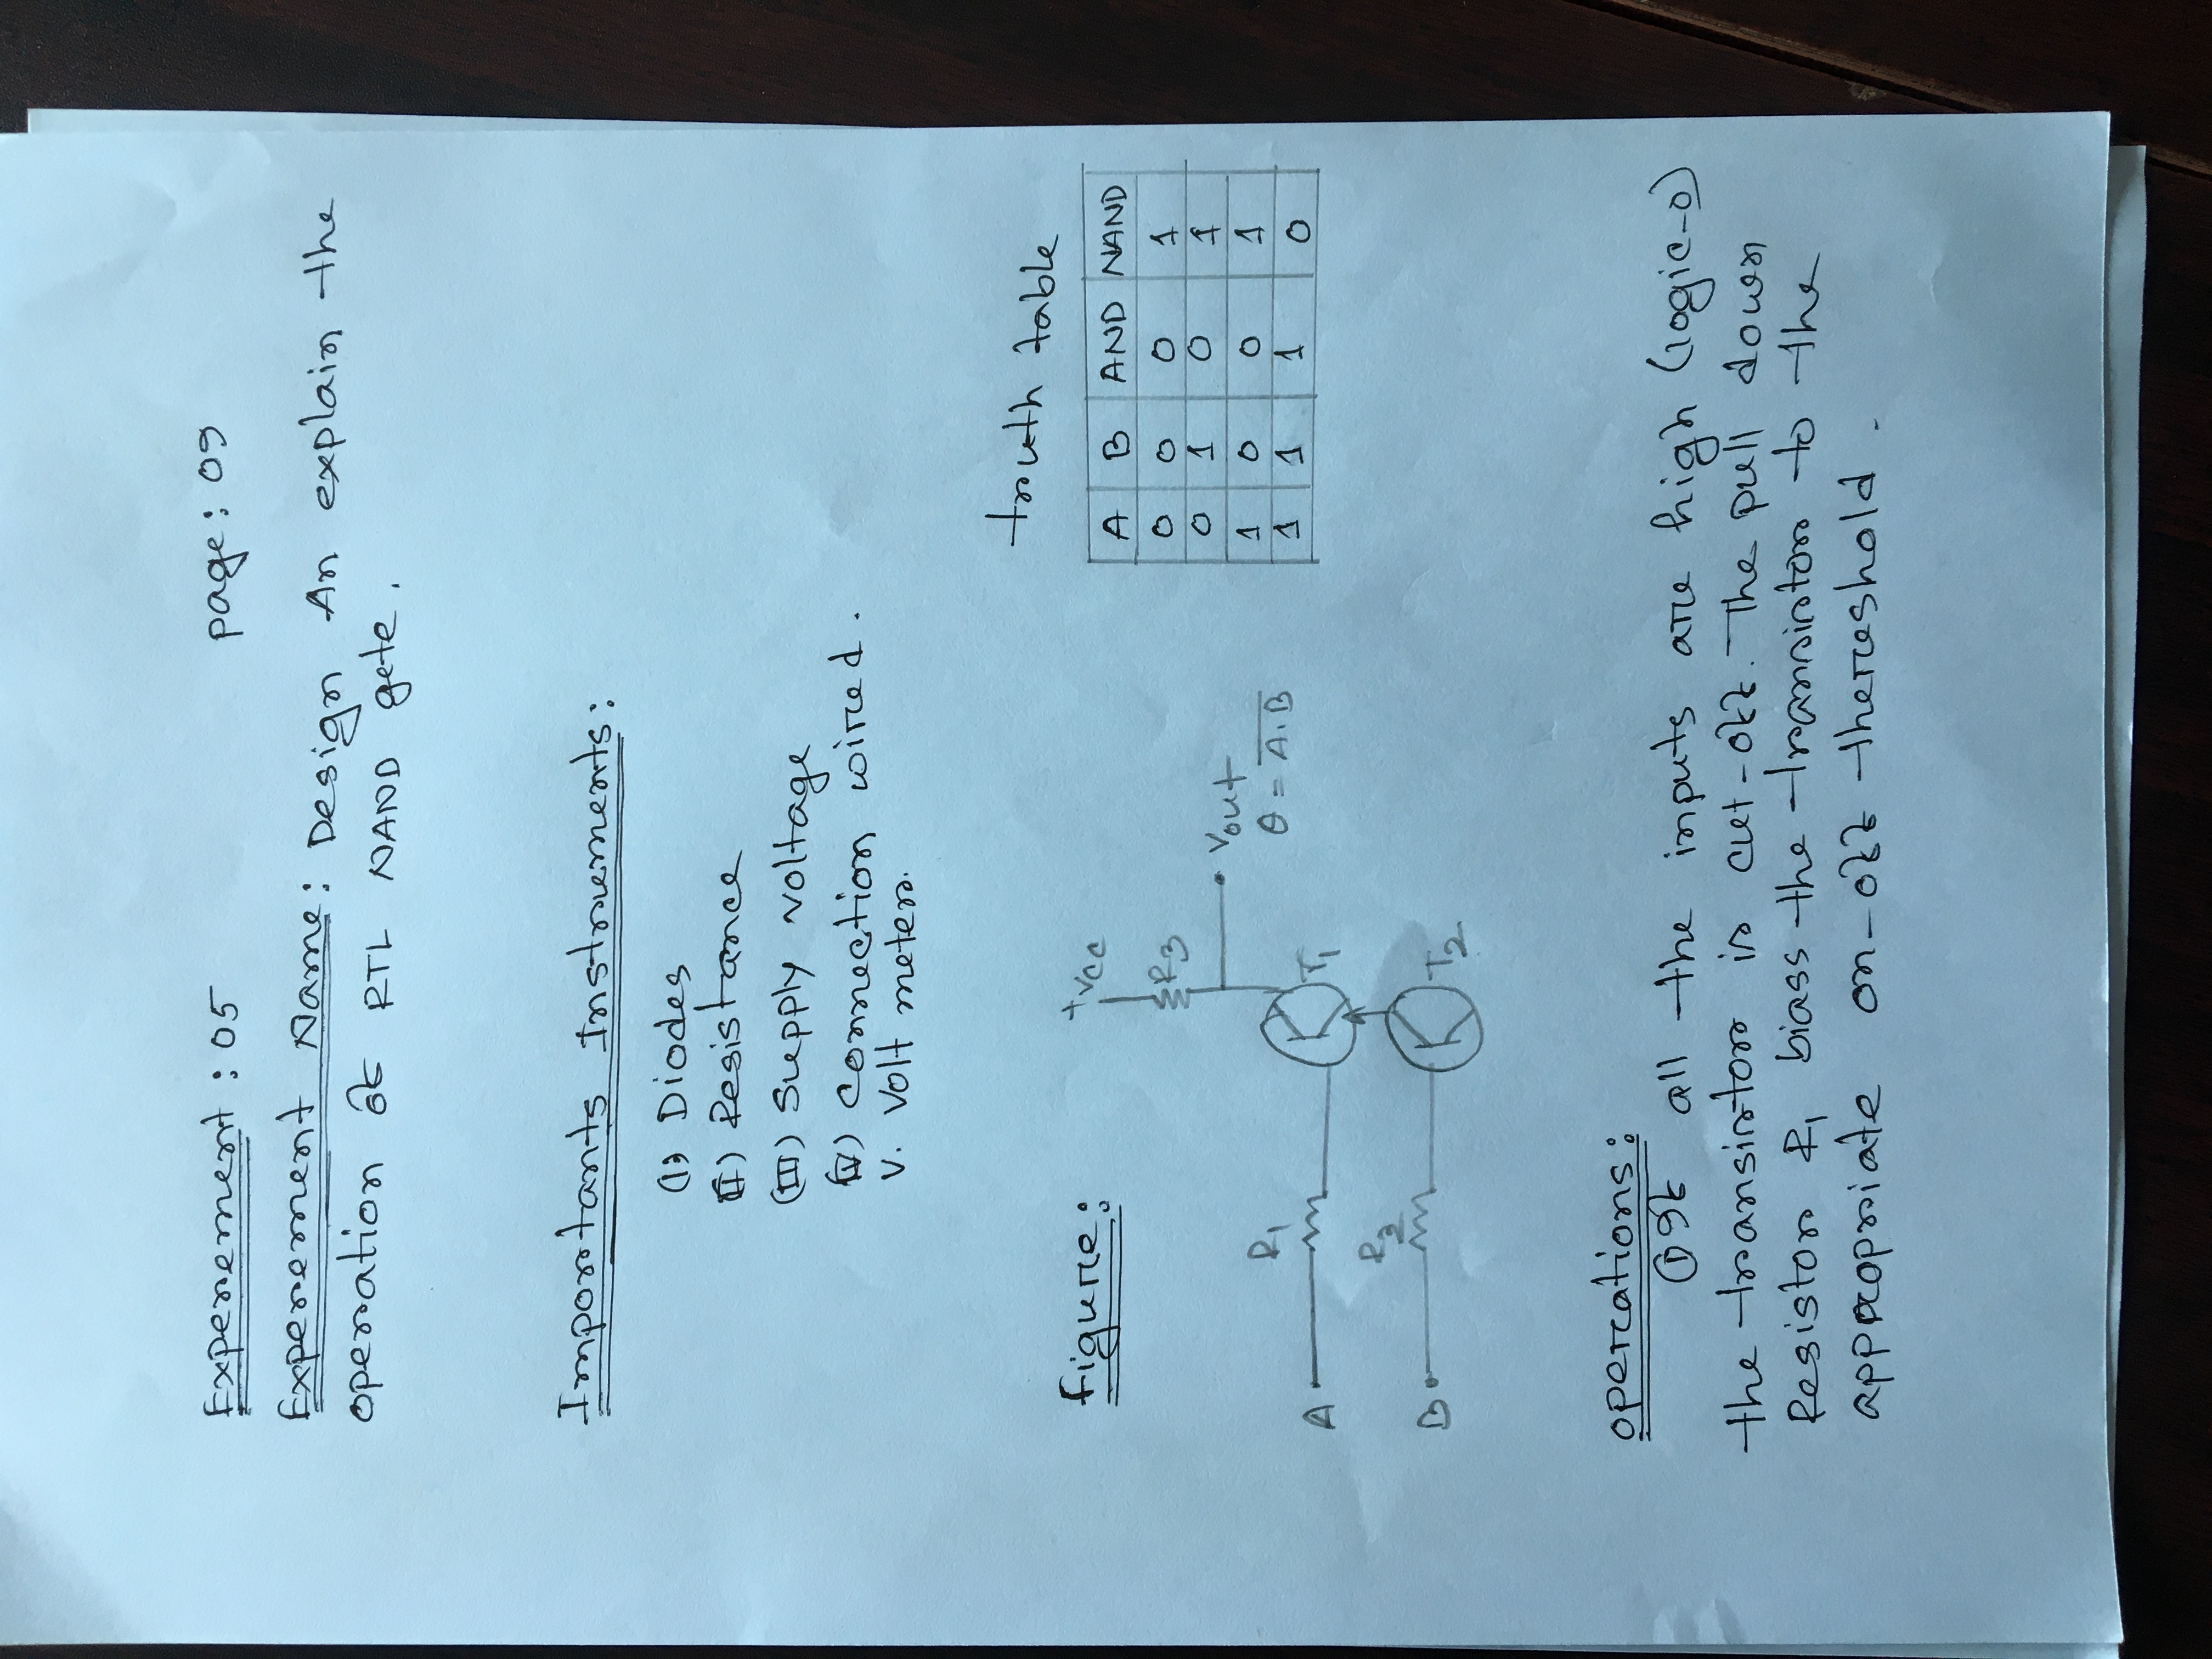 Experement : 05
page: 09
Experement Name: Design An explain the
operation of RTL NAND gete.
Importants Instruements:
(I) Diodes
(II) Resistance
(III) Supply voltage
(IV) Connection wired.
V. Volt meter.
truth table
figure:
+Vcc
R3
Vout
θ = \overline{A.B}
A B AND NAND
0 0 0 1
0 1 0 1
1 0 0 1
1 1 1 0
R1
A
T1
R2
B
T2
operations:
① If all the inputs are high (logic-0)
the transistor is cut-off. The pull down
Resistor R1 biass the transistor to the
appropriate on-off thereshold.